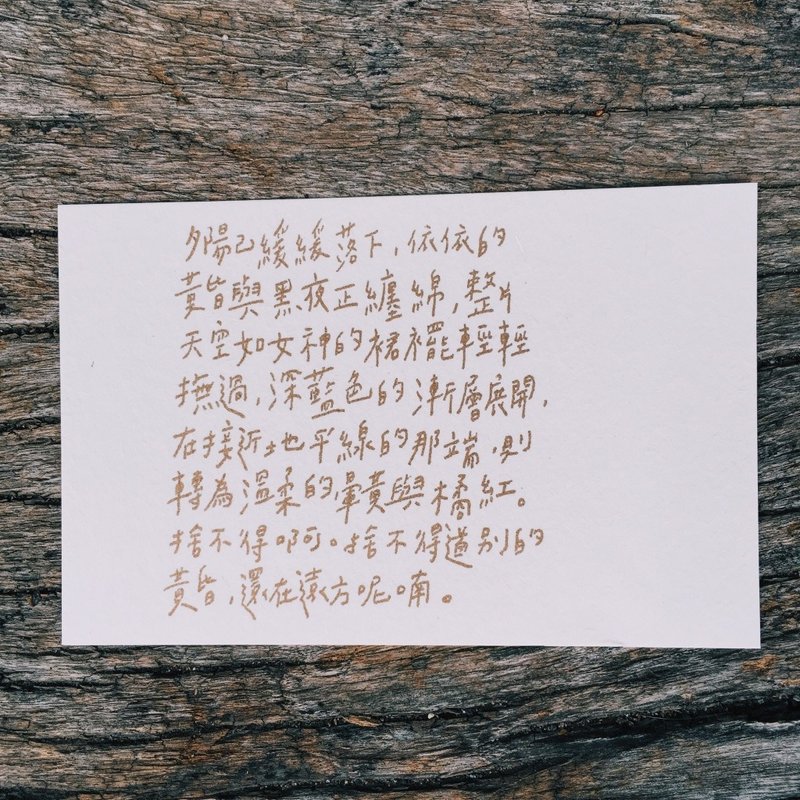 夕陽已緩緩落下，依依的
黃昏與黑夜正纏綿，整片
天空如女神的裙襬輕輕
撫過，深藍色的漸層展開，
在接近地平線的那端，則
轉為溫柔的暈黃與橘紅。
捨不得啊。捨不得道別的
黃昏，還在遠方呢喃。